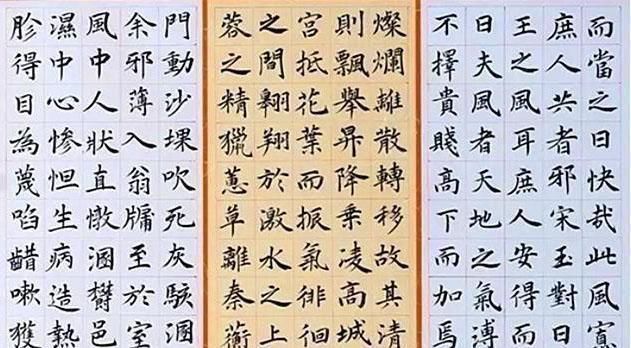 而當之曰快哉此風寡
庶人共者邪宋玉對曰
王之風耳庶人安得而
曰夫風者天地之氣溥
不擇貴賤高下而加焉
燦爛離散轉移故其清
則飄舉昇降乘凌高城
宮抵花葉而振氣徘徊
之間翱翔於激水之上
蓉之精獵蕙草離秦蘅
門動沙堁吹死灰駭溷
余邪薄入翁牖至於室
風中人狀直憞溷鬱邑
濕中心慘怛生病造熱
胗得目為蔑啗齰嗽獲